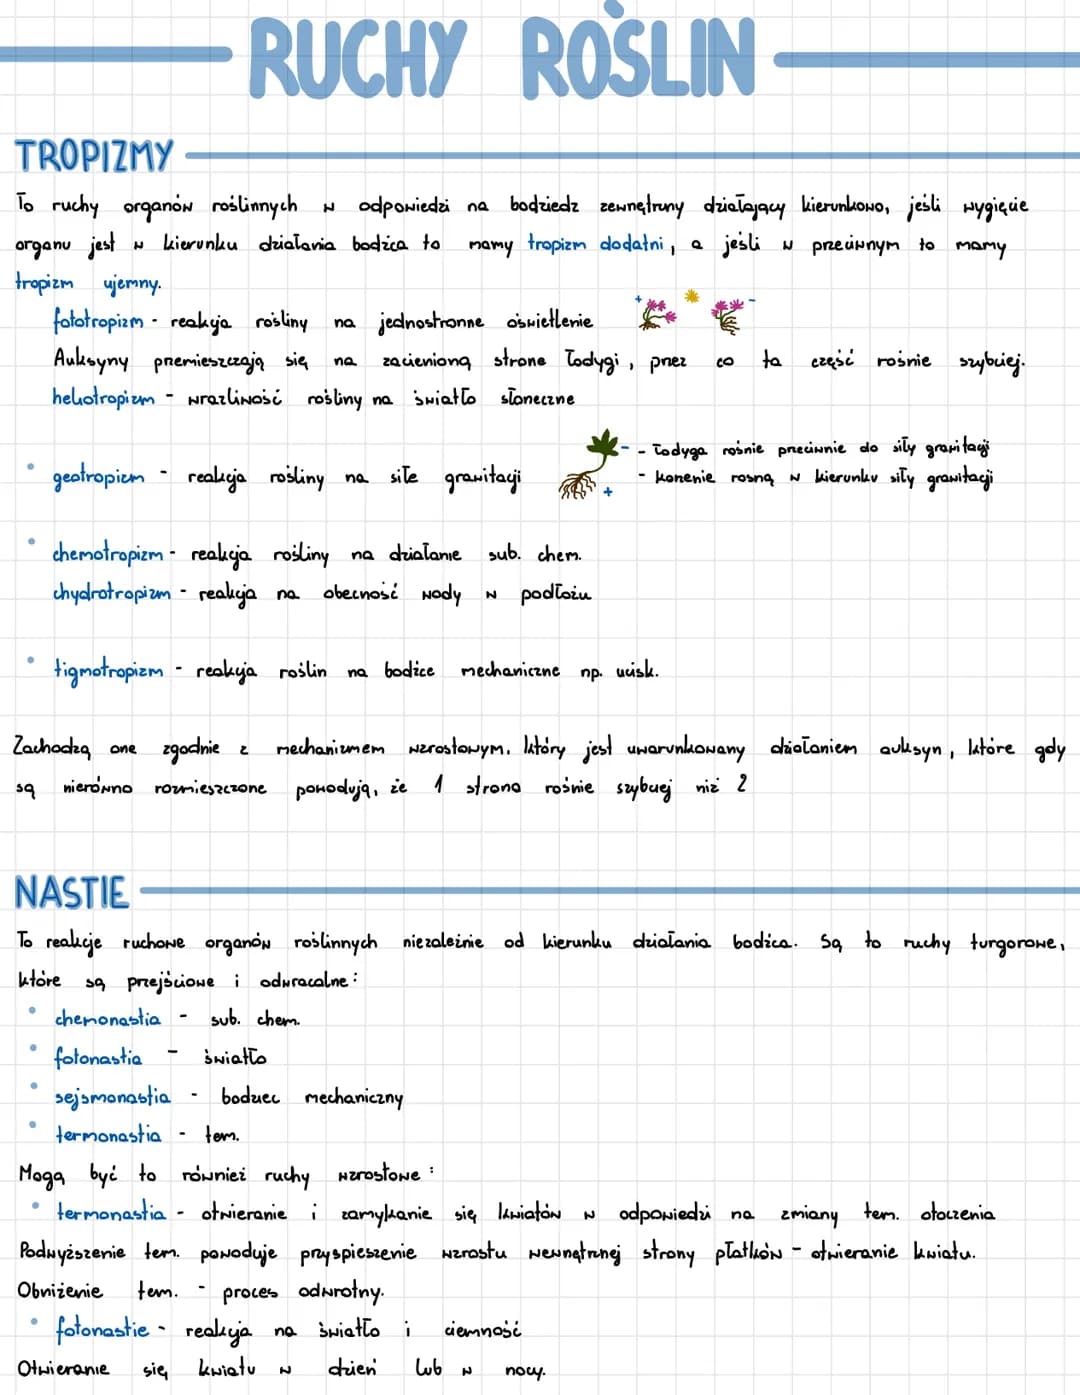 RUCHY ROŚLIN
TROPIZMY
To ruchy organów roślinnych w odpowiedzi na bodziedz zewnętrzny działający kierunkowo, jeśli wygięcie
organu jest w kierunku działania bodźca to mamy tropizm dodatni, a jeśli w przeciwnym to mamy
tropizm ujemny.
fototropizm - reakcja rośliny na jednostronne oświetlenie
+ -
Auksyny przemieszczają się na zacienioną strone łodygi, przez co ta część rośnie szybciej.
heliotropizm - wrażliwość rośliny na światło słoneczne
- - łodyga rośnie przeciwnie do siły grawitacji
• geotropizm - reakcja rośliny na siłe grawitacji
+ - korzenie rosną w kierunku siły grawitacji
• chemotropizm - reakcja rośliny na działanie sub. chem.
chydrotropizm - reakcja na obecność wody w podłożu
• tigmotropizm - reakcja roślin na bodźce mechaniczne np. ucisk.
Zachodzą one zgodnie z mechanizmem wzrostowym, który jest uwarunkowany działaniem auksyn, które gdy
są nierówno rozmieszczone powodują, że 1 strona rośnie szybciej niż 2
NASTIE
To reakcje ruchowe organów roślinnych niezależnie od kierunku działania bodźca. Są to ruchy turgorowe,
które są przejściowe i odwracalne:
• chemonastia - sub. chem.
• fotonastia - światło
• sejsmonastia - bodziec mechaniczny
• termonastia - tem.
Mogą być to również ruchy wzrostowe:
• termonastia - otwieranie i zamykanie się kwiatów w odpowiedzi na zmiany tem. otoczenia
Podwyższenie tem. powoduje przyspieszenie wzrostu wewnętrznej strony płatków - otwieranie kwiatu.
Obniżenie tem. - proces odwrotny.
• fotonastie - reakcja na światło i ciemność
Otwieranie się kwiatu w dzień lub w nocy.